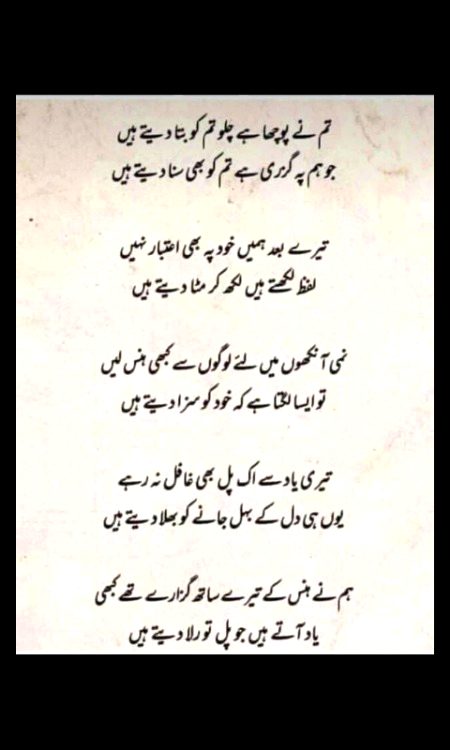 تم نے پوچھا ہے چلو تم کو بتا دیتے ہیں
جو ہم پہ گزری ہے تم کو بھی سنا دیتے ہیں
تیرے بعد ہمیں خود پہ بھی اعتبار نہیں
لفظ لکھتے ہیں لکھ کر مٹا دیتے ہیں
نمی آنکھوں میں لئے لوگوں سے کبھی ہنس لیں
تو ایسا لگتا ہے کہ خود کو سزا دیتے ہیں
تیری یاد سے اک پل بھی غافل نہ رہے
یوں ہی دل کے بہل جانے کو بھلا دیتے ہیں
ہم نے ہنس کے تیرے ساتھ گزارے تھے کبھی
یاد آتے ہیں جو پل تو رلا دیتے ہیں